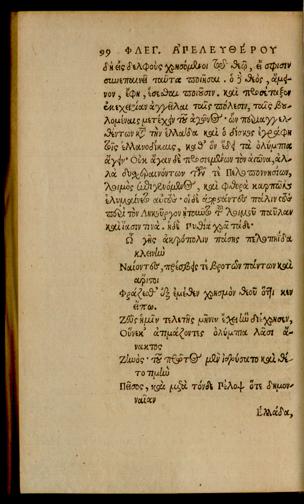 99 ΦΛΕΓ. ΑΠΕΛΕΥΘΕΡΟΥ
δὴ εἰς δελφοὺς χρησομένους τῷ θεῷ, εἰ σφισιν
συνεπαινεῖ ταῦτα ποιῆσαι. ὁ δὲ θεὸς, ἄμεινον,
ἔφη, ἔσεσθαι ποιοῦσιν. καὶ προσέταξεν
ἐκεχειρίαν ἀγγεῖλαι ταῖς πόλεσιν, ταῖς βουλομέναις
μετέχειν τοῦ ἀγῶνος· ὧν περιαγγελθέντων
κατὰ τὴν ἑλλάδα καὶ ὁ δίσκος ἐγράφη
τοῖς ἑλλανοδίκαις, καθ' ὃν ἔδει τὰ ὀλύμπια
ἄγειν. Οὐκ ἄγαν δὲ προσιεμένων τὸν ἀγῶνα, ἀλλὰ
δυσχεραινόντων τῶν τε Πελοποννησίων,
λοιμὸς ἐπιγενόμενος, καὶ φθορὰ καρποῖς
ἐλυμαίνετο αὐτούς· οἱ δὲ πάλιν τοὺς
περὶ τὸν Λυκοῦργον ᾐτοῦντο τοῦ λοιμοῦ παῦλαν
καὶ ἴασίν τινα. ἡ δὲ Πυθία χρᾷ τάδε·
Ὦ γῆς ἀκρόπολιν πάσης πελοπηΐδα
κλεινὴν
Ναίοντες, πρέσβεις τε βροτῶν πάντων καὶ
ἄριστοι
Φράζεσθ' ἐξ ἐμέθεν χρησμὸν θεοῦ ὅττι κεν
εἴπω.
Ζεὺς ὑμῖν τελετῆς μῆνιν ἔχει ἣν διέχρησεν,
Οὕνεκ' ἀτιμάζοντες ὀλύμπια ἄνακτος
Ζηνός· τοῦ πρῶτος μὲν ἱδρύσατο καὶ θέτο
τιμὴν
Πεῖσος, καὶ μετὰ τόνδε Πέλοψ ὅτε δὴ μόλεν
αἶαν
Ἑλλάδα,